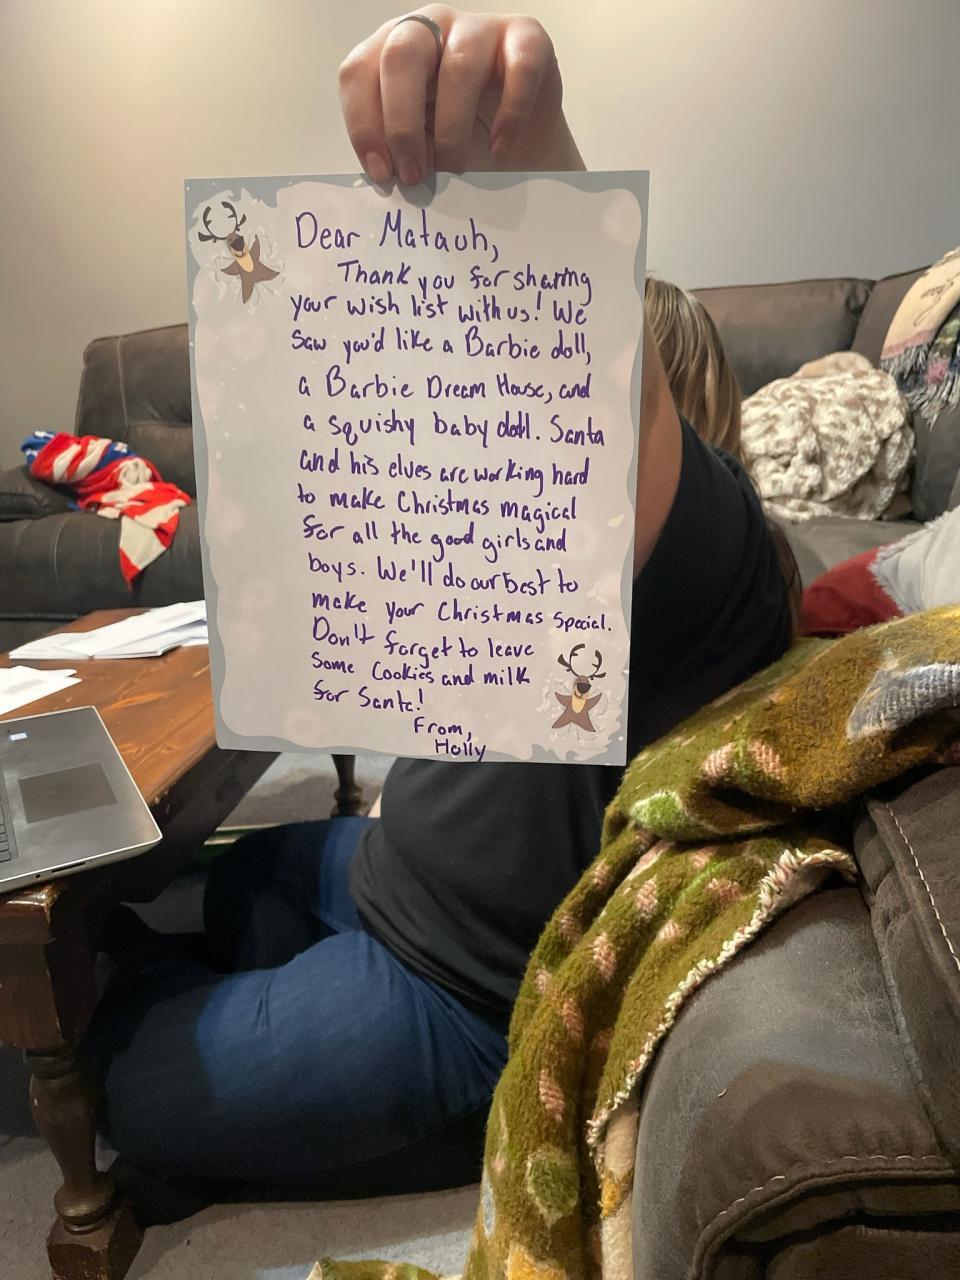 Dear Matauh,
Thank you for sharing
your wish list with us! We
saw you'd like a Barbie doll,
a Barbie Dream House, and
a squishy baby doll. Santa
and his elves are working hard
to make Christmas magical
for all the good girls and
boys. We'll do our best to
make your Christmas special.
Don't forget to leave
some Cookies and milk
for Santa!
From,
Holly